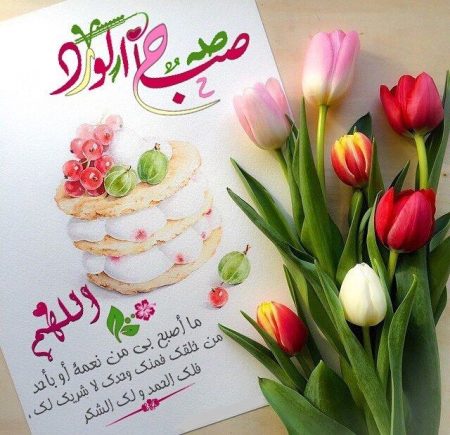 صباح الورد
اللهم
ما أصبح بي من نعمة أو بأحد
من خلقك فمنك وحدك لا شريك لك ،
فلك الحمد و لك الشكر